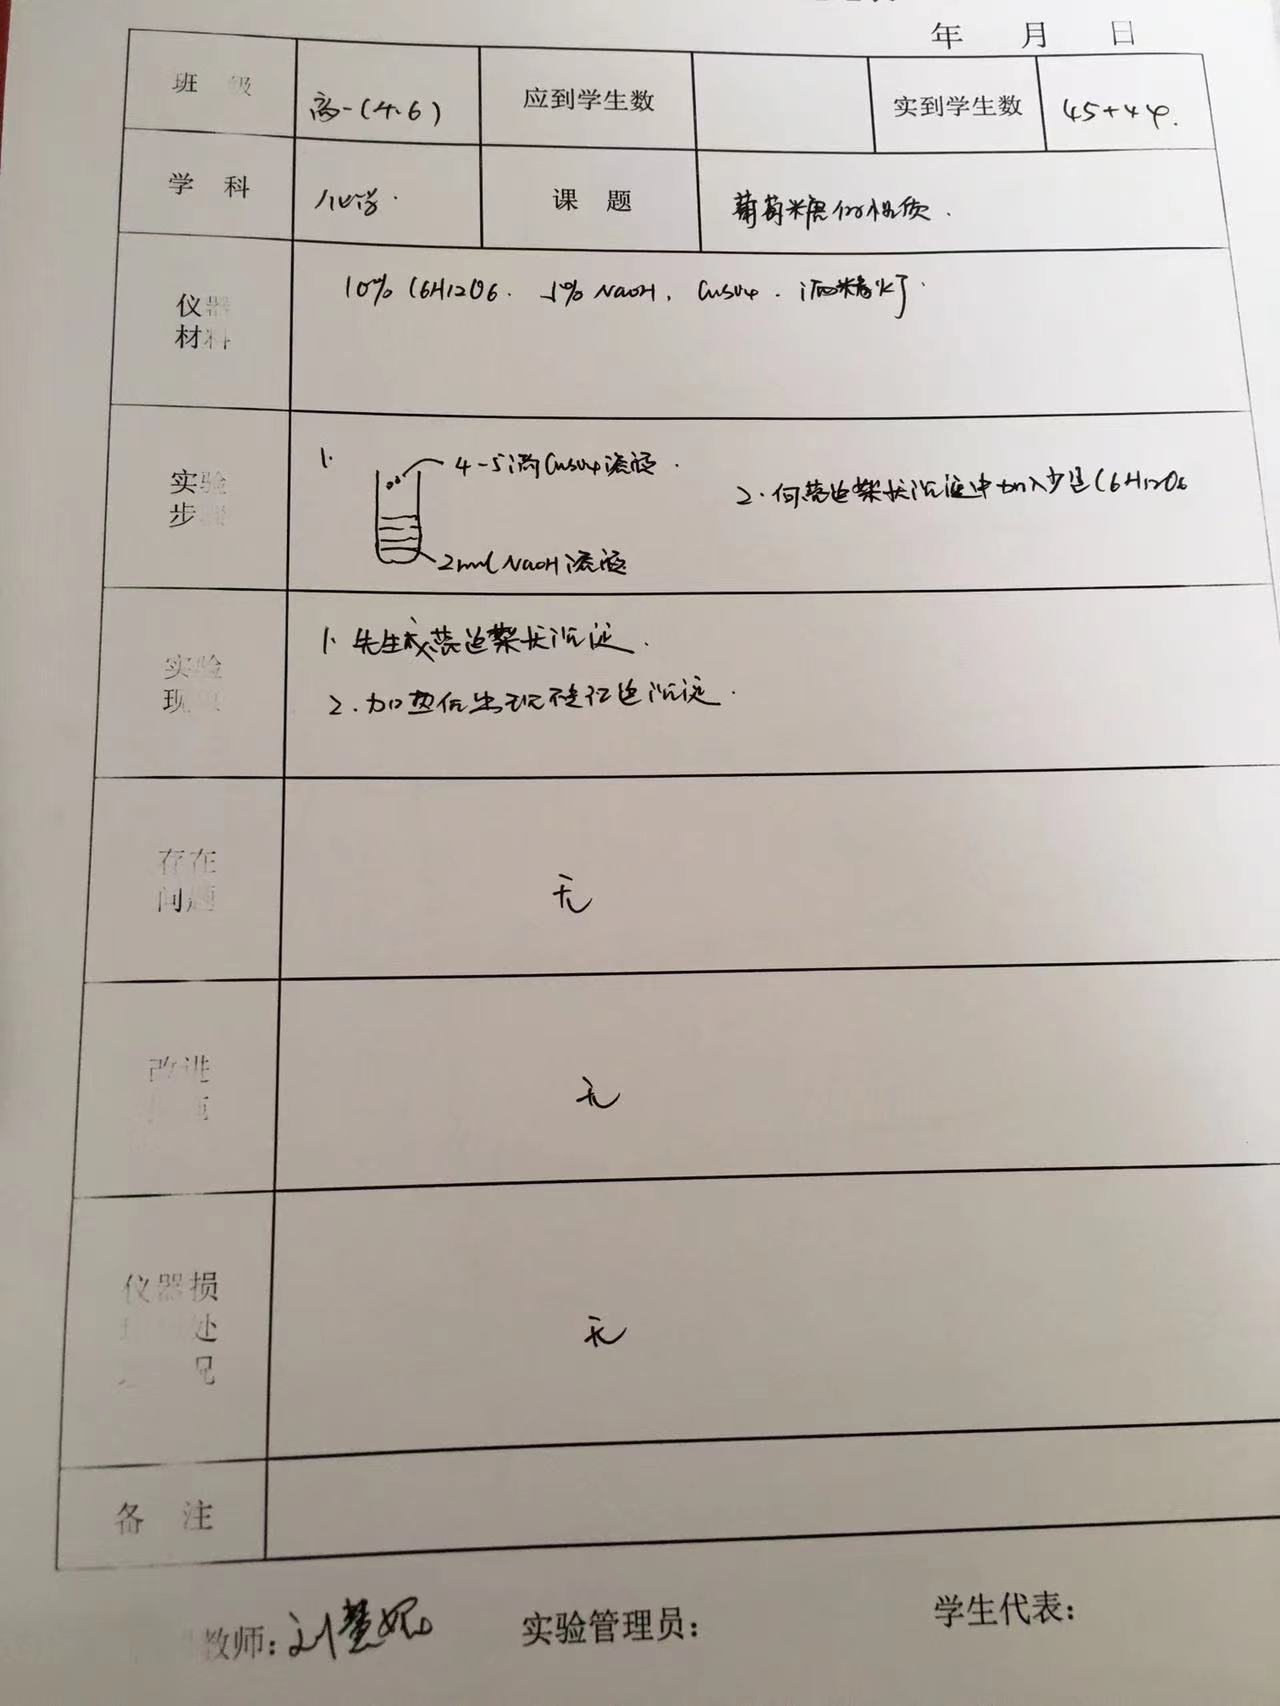 年 月 日
班 级 高一(4.6) 应到学生数 实到学生数 45+44.
学 科 化学. 课 题 葡萄糖的性质.
仪器
材料
10% C6H12O6. 5% NaOH. CuSO4. 酒精灯.
实验
步骤
1. 4-5滴CuSO4溶液.
2ml NaOH溶液
2.向蓝色絮状沉淀中加入少量C6H12O6
实验
现象
1. 先生成蓝色絮状沉淀.
2. 加热后出现砖红色沉淀.
存在
问题
无
改进
无
仪器损
处
况
无
备 注
教师:刘慧妮 实验管理员: 学生代表: